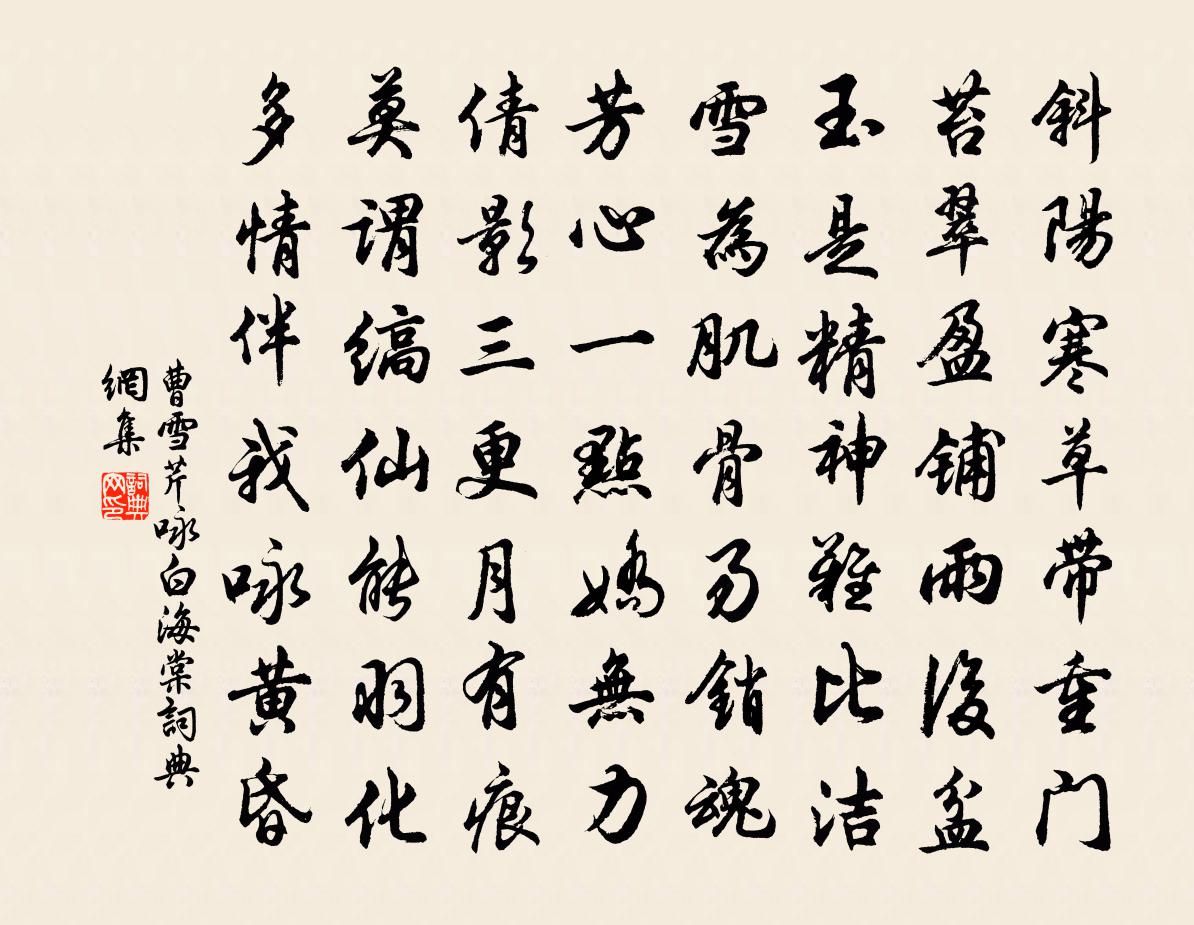 斜陽寒草帶重門
苔翠盈鋪雨後盆
玉是精神難比洁
雪為肌骨易銷魂
芳心一點嬌無力
倩影三更月有痕
莫謂縞仙能羽化
多情伴我咏黃昏
曹雪芹咏白海棠詞典
網集
詞典
网印